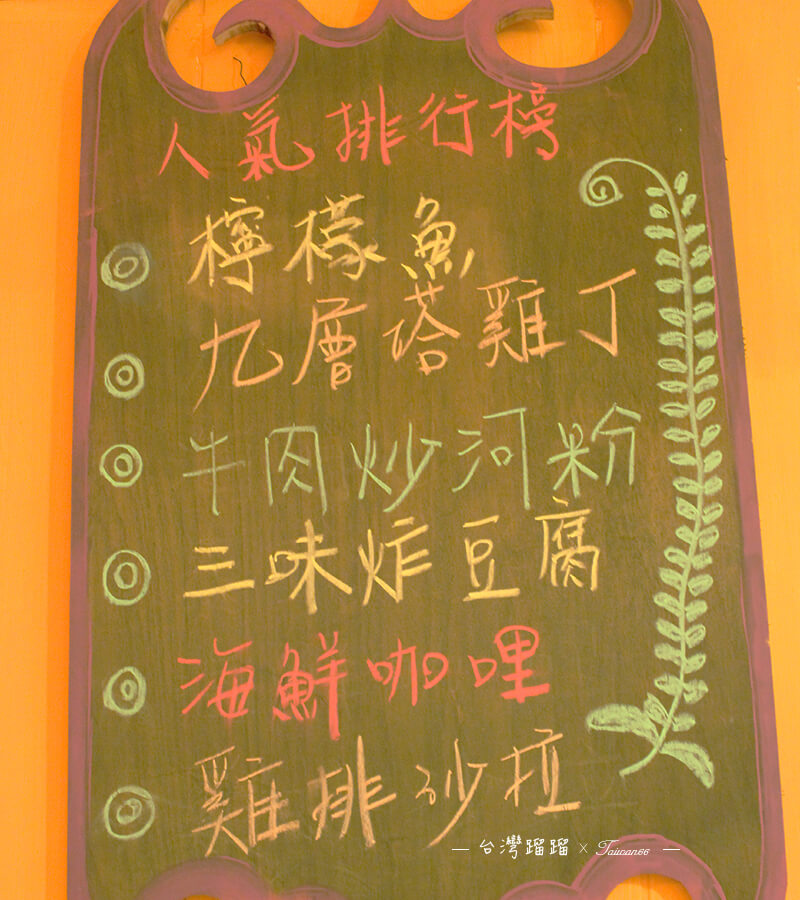 人氣排行榜
檸檬魚
九層塔雞丁
牛肉炒河粉
三味炸豆腐
海鮮咖哩
雞排砂拉
— 台灣蹓蹓 × Taiwan66 —